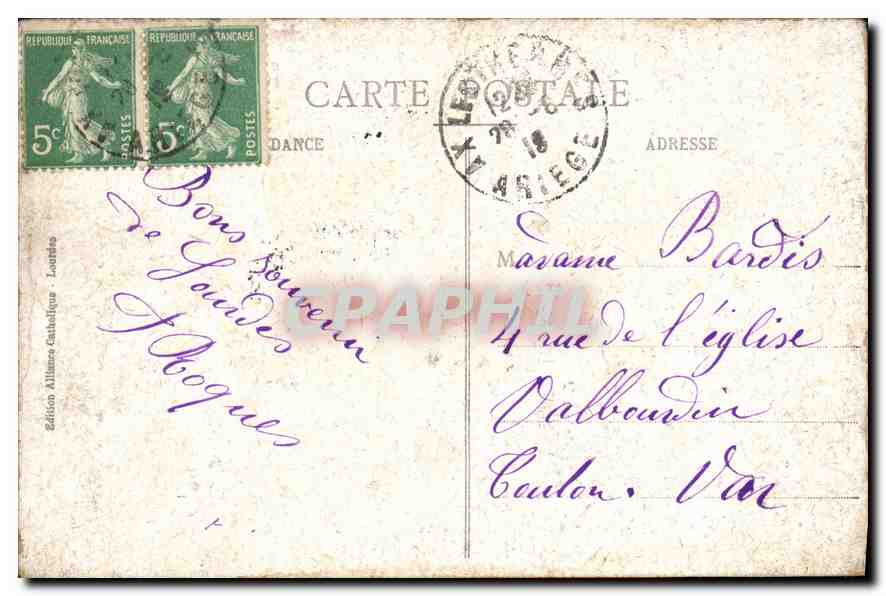 REPUBLIQUE FRANÇAISE
5c
POSTES
REPUBLIQUE FRANÇAISE
5c
POSTES
CARTE POSTALE
DANCE
ADRESSE
ARIEGE
12
28
18
Bons souvenir
de Lourdes
J Roques
Madame Bardis
4 rue de l'église
Valbourdin
Toulon. Var
Edition Alliance Catholique - Lourdes
CPAPHIL